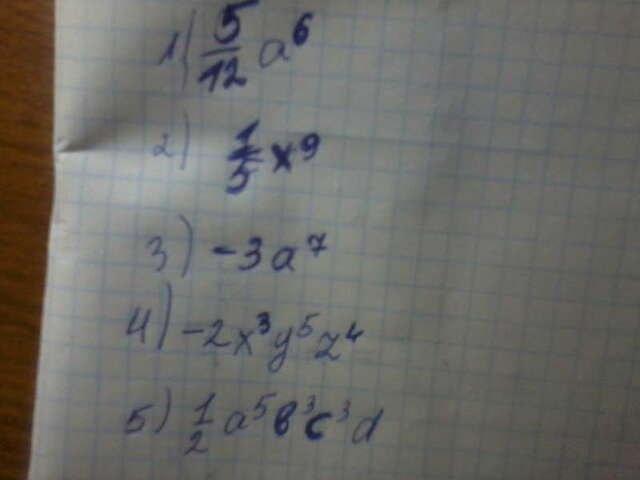 1) 5/12 a⁶
2) 1/5 x⁹
3) -3a⁷
4) -2x³y⁵z⁴
5) 1/2 a⁵b³c³d